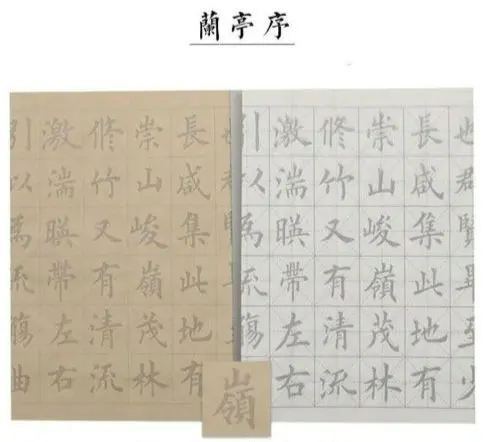 蘭亭序
也群賢畢至少
長咸集此地有
崇山峻嶺茂林
修竹又有清流
激湍暎帶左右
引以爲流觴
長咸集此地有
崇山峻嶺茂林
修竹又有清流
激湍暎帶左右
引以爲流觴曲
嶺